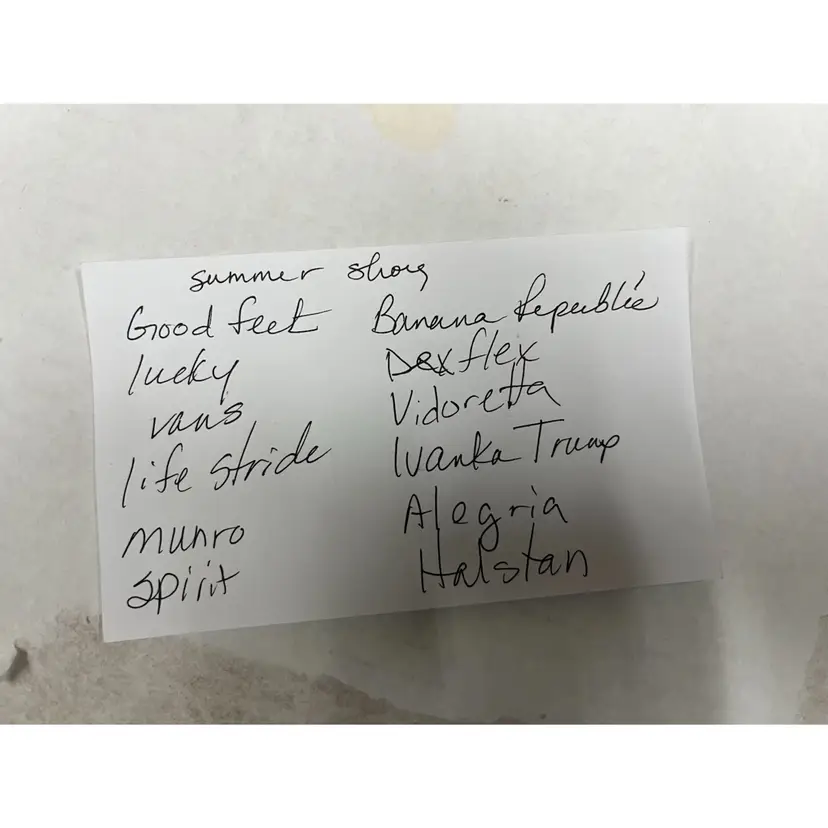 summer shoes
Good feet
lucky
vans
life stride
munro
spirit
Banana Republic
Dexflex
Vidoretta
Ivanka Trump
Alegria
Halstan